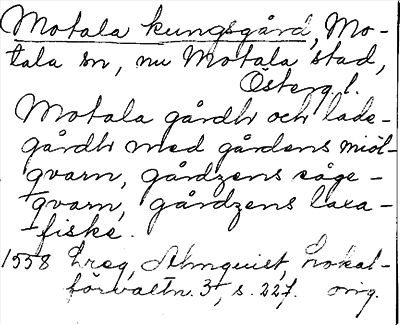 Motala kungsgård, Mo-
tala sn, nu Motala stad,
Österg. l.
Motala gårdh och lade-
gårdh med gårdens miöl-
qvarn, gårdzens såge-
qvarn, gårdzens laxa-
fiske.
1558 Ereg, Almquist, Lokal-
förvaltn. 3, s. 227. orig.